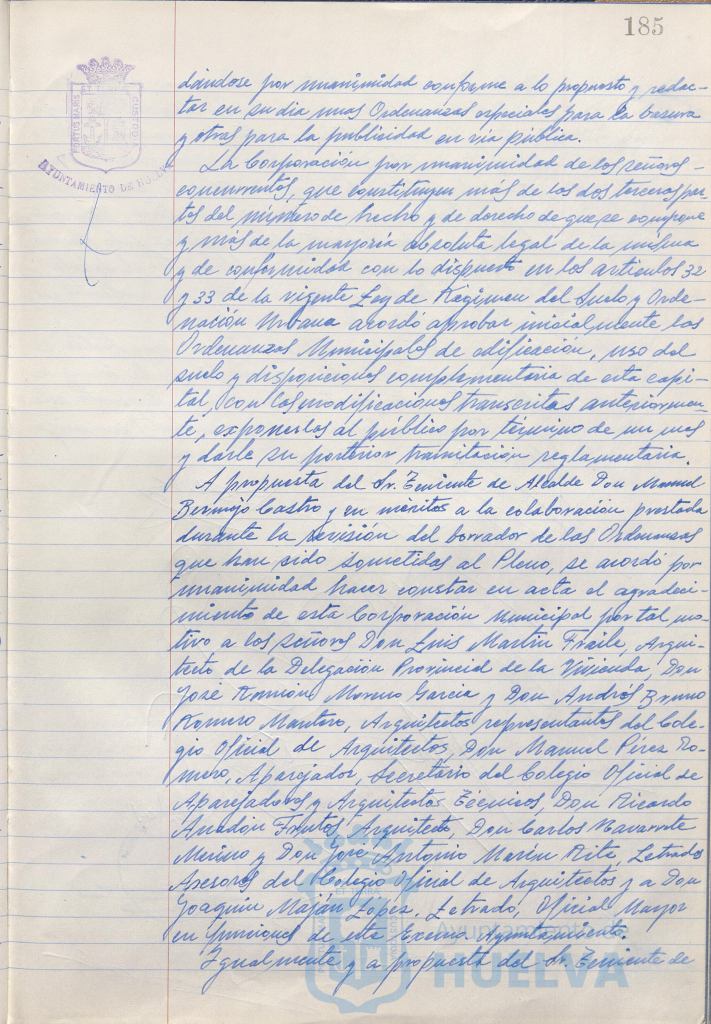 185
PORTUS MARIS
CUSTODIA
AYUNTAMIENTO DE HUELVA
dándose por unanimidad conforme a lo propuesto y redac-
tar en su dia unas Ordenanzas especiales para la basura
y otras para la publicidad en via pública.
La Corporación por unanimidad de los señores
concurrentes, que constituyen más de las dos terceras par-
tes del número de hecho y de derecho de que se compone
y más de la mayoria absoluta legal de la misma
y de conformidad con lo dispuesto en los articulos 32
y 33 de la vigente Ley de Régimen del Suelo y Orde-
nación Urbana acordó aprobar inicialmente las
Ordenanzas Municipales de edificación, uso del
suelo y disposiciones complementaria de esta capi-
tal, con las modificaciones transcritas anteriormen-
te, exponerlas al público por término de un mes
y darle su posterior tramitación reglamentaria.
A propuesta del Sr. Teniente de Alcalde Don Manuel
Bermejo Castro y en méritos a la colaboración prestada
durante la revisión del borrador de las Ordenanzas
que han sido sometidas al Pleno, se acordó por
unanimidad hacer constar en acta el agradeci-
miento de esta Corporación Municipal por tal mo-
tivo a los señores Don Luis Martin Fraile, Arqui-
tecto de la Delegación Provincial de la Vivienda, Don
José Ramón Moreno Garcia y Don Andrés Bruno
Romero Mantero, Arquitectos representantes del Cole-
gio Oficial de Arquitectos, Don Manuel Pérez Ro-
mero, Aparejador, Secretario del Colegio Oficial de
Aparejadores y Arquitectos Técnicos, Don Ricardo
Anadón Frutos, Arquitecto, Don Carlos Navarrete
Merino y Don José Antonio Marin Rite, Letrados
Asesores del Colegio Oficial de Arquitectos y a Don
Joaquin Maján López, Letrado, Oficial Mayor
en funciones de este Excmo. Ayuntamiento.
Igualmente y a propuesta del Sr. Teniente de
Ayuntamiento de
HUELVA